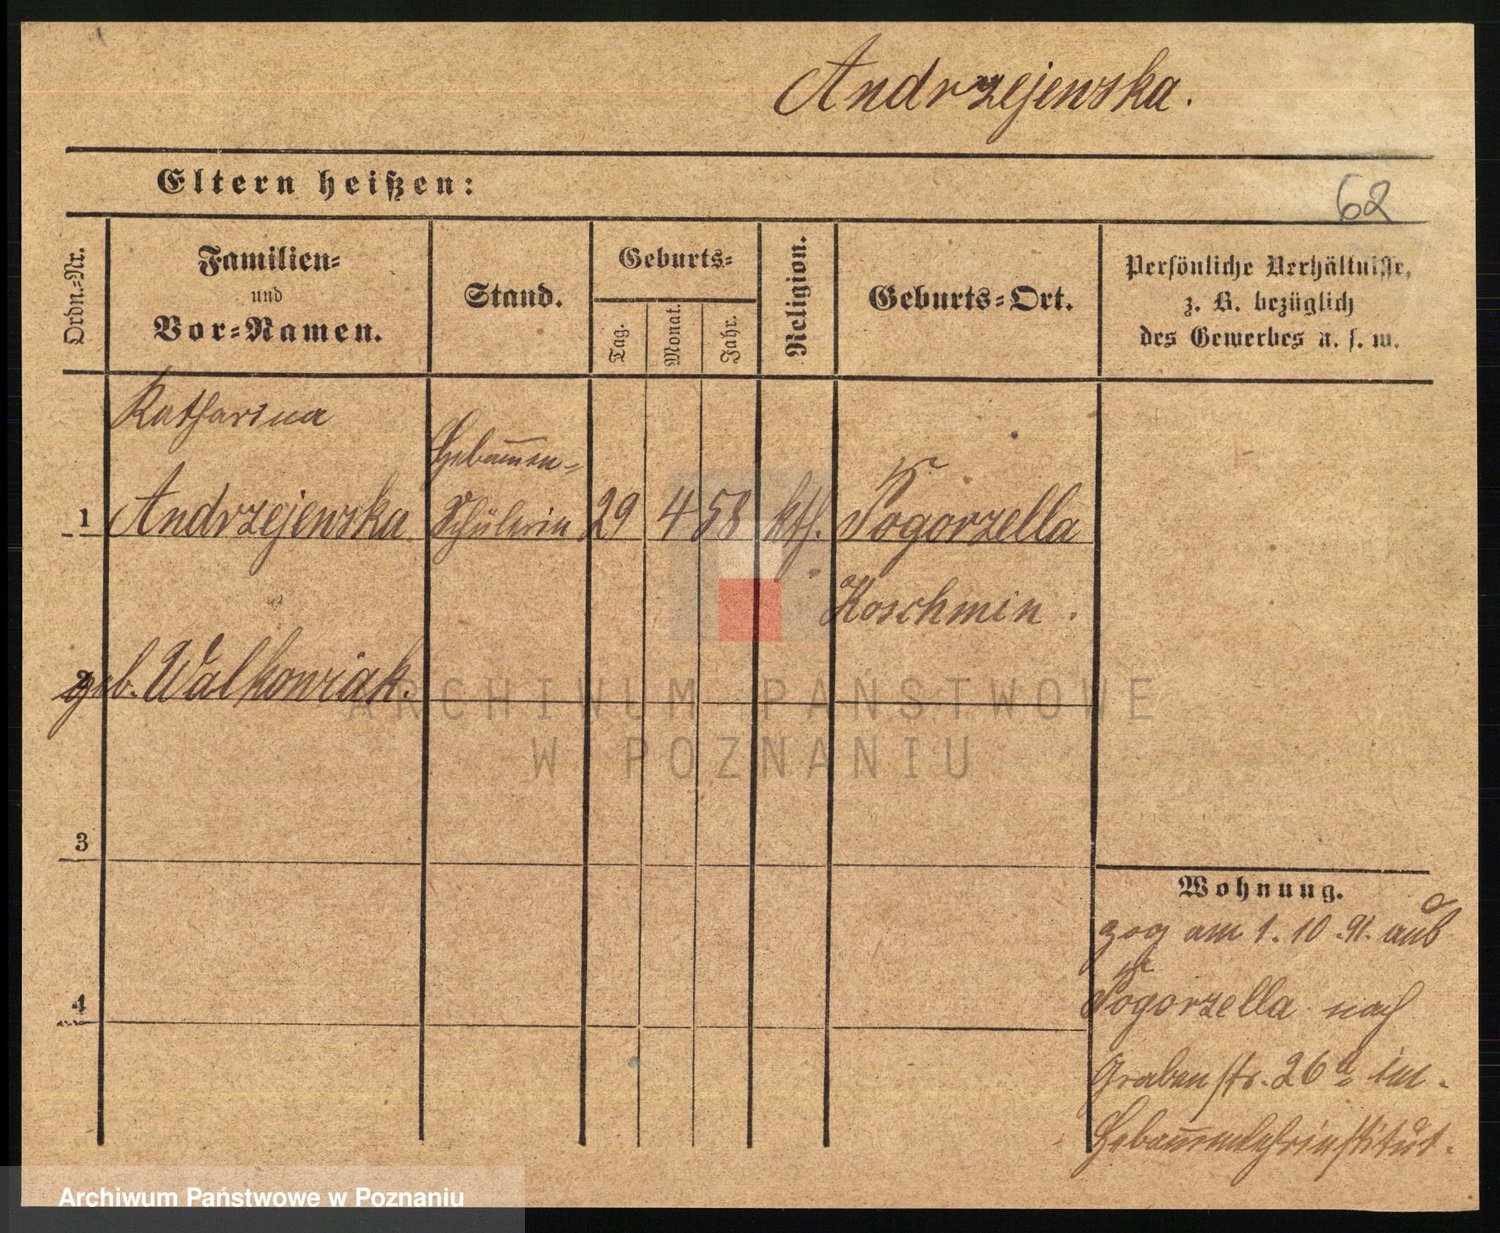 Andrzejewska.
Eltern heißen:
62
Ordn.-Nr.
Familien-
und
Vor-Namen.
Stand.
Geburts-
Tag.
Monat.
Jahr.
Religion.
Geburts-Ort.
Persönliche Verhältnisse,
z. B. bezüglich
des Gewerbes u. s. w.
Katharina
Hebam̅en-
1 Andrzejewska Schülerin 29 4 58 kth. Pogorzella
Koschmin.
2 geb. Walkowiak.
ARCHIWUM PAŃSTWOWE
W POZNANIU
3
Wohnung.
zog am 1. 10. 91. aus
4
Pogorzella nach
Grabenstr. 26a im
Hebam̅enlehrinstitut.
Archiwum Państwowe w Poznaniu